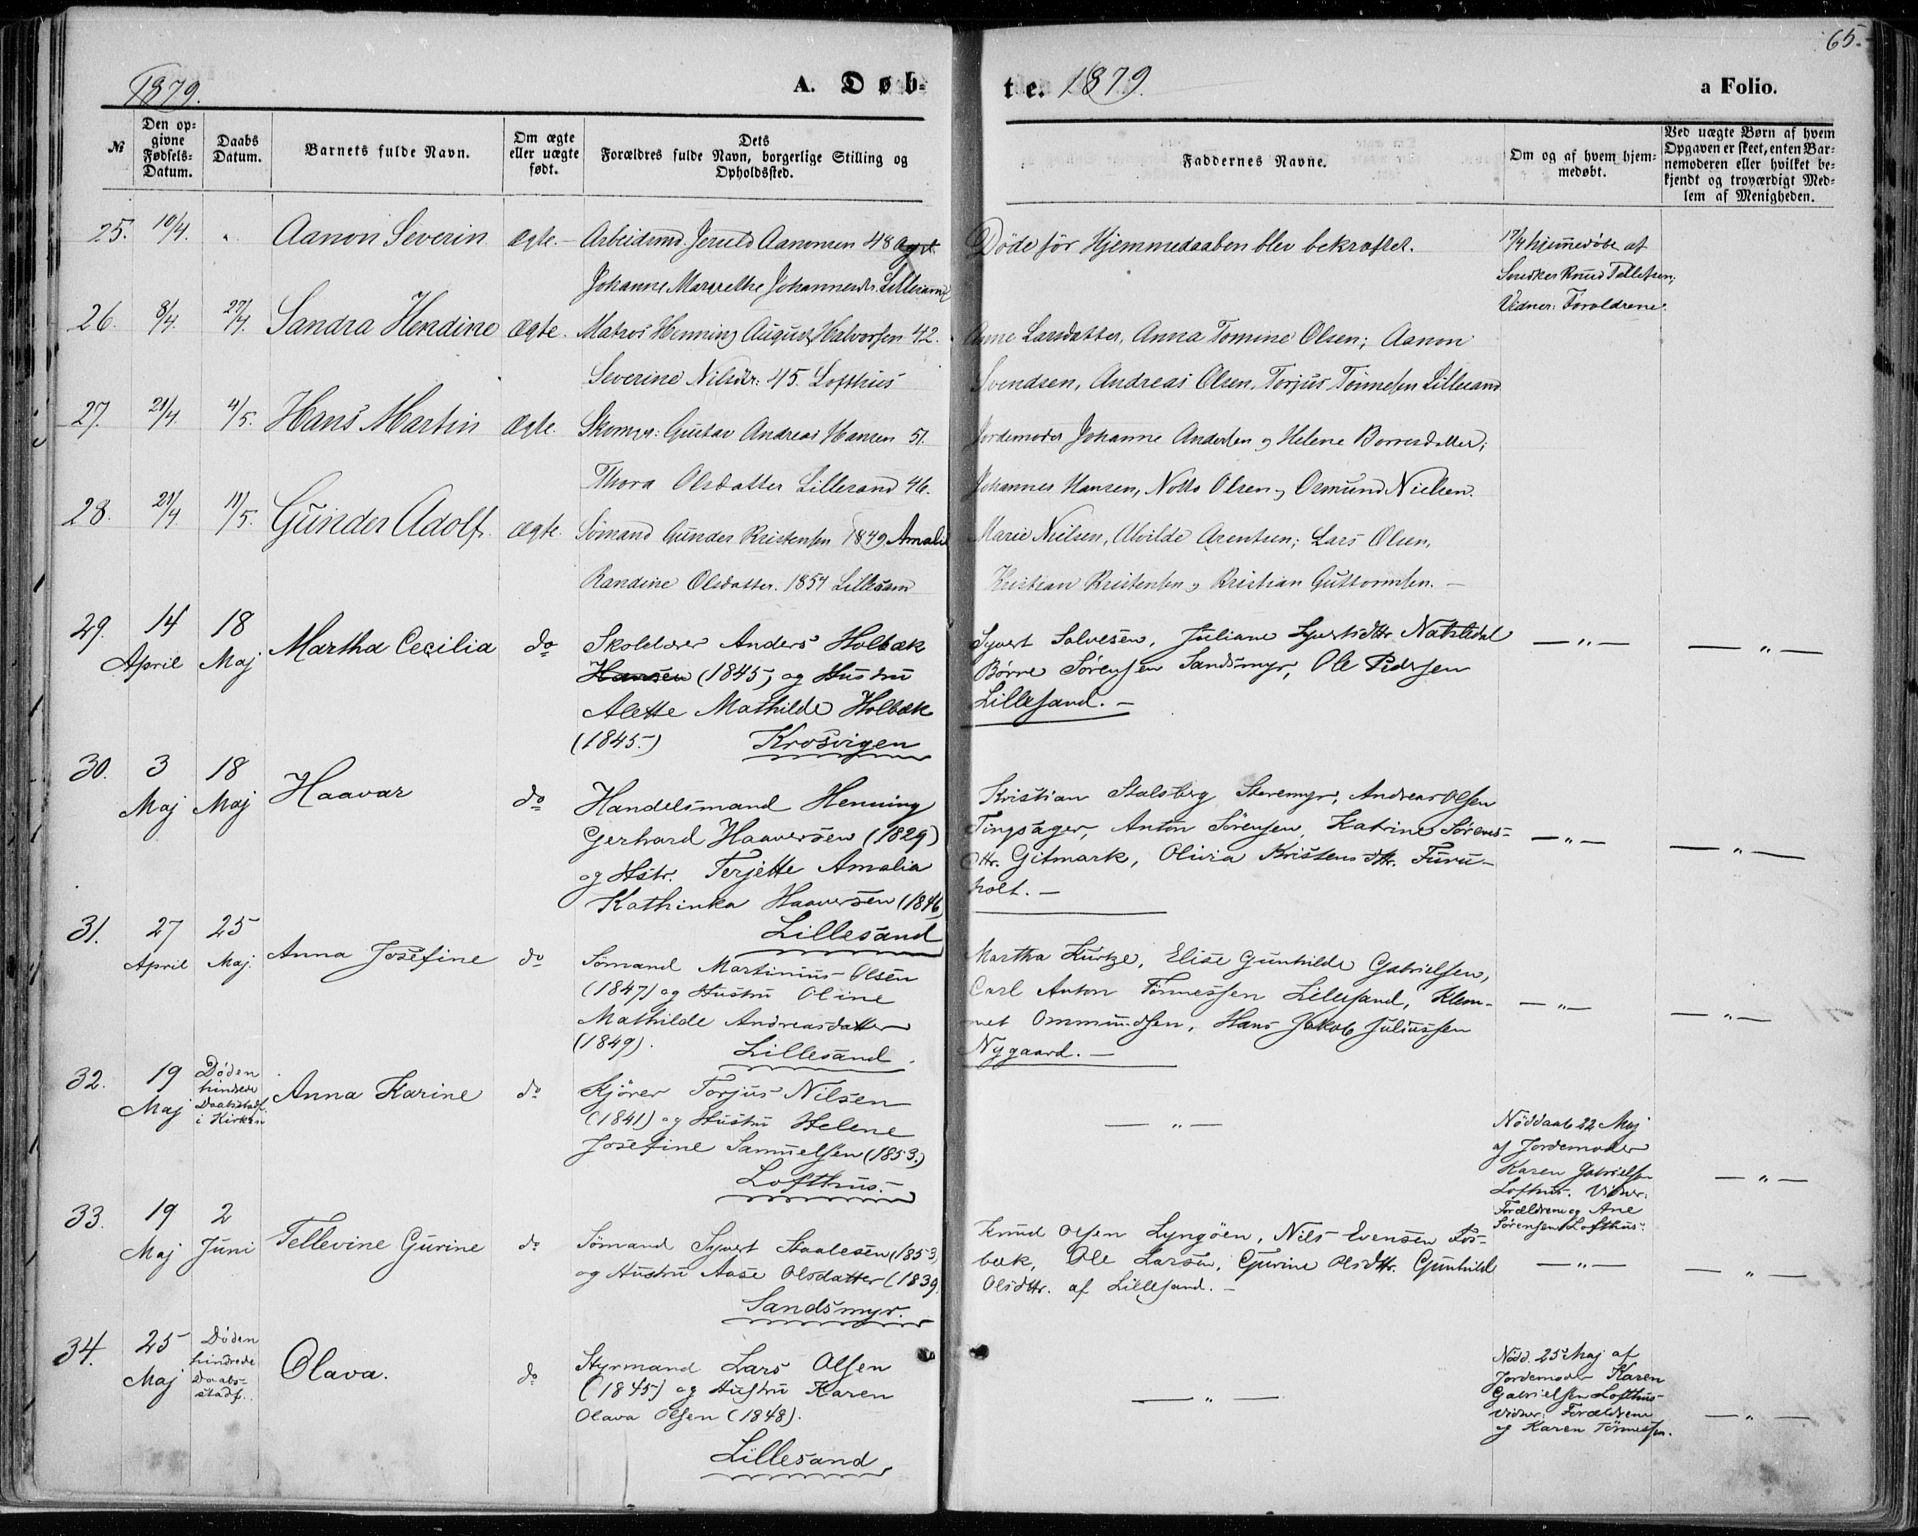 65.
1879.
A. Døb-
te. 1879.
a Folio.
№
Den op-
givne
Fødsels-
Datum.
Daabs
Datum.
Barnets fulde Navn.
Om ægte
eller uægte
født.
Dets
Forældres fulde Navn, borgerlige Stilling og
Opholdssted.
Faddernes Navne.
Om og af hvem hjem-
medøbt.
Ved uægte Børn af hvem
Opgaven er skeet, enten Bar-
nemoderen eller hvilket be-
kjendt og troværdigt Med-
lem af Menigheden.
25.
10/4.
"
Aanon Severin
Ægte.
Arbeidsmd. Aanonsen 48
Johanne Margrethe
Døde før Hjemmedaaben blev bekræftet.
hjemmedøbt af
Snedker Knud Tellefsen;
Vidner: Forældrene.
26.
8/4.
27/4.
Sandra Hendine
Ægte.
Matros Henning August Halvorsen 42.
Severine Nilsdtr: 45. Lofthus
Anne Larsdatter, Anna Tomine Olsen; Aanon
Svendsen, Andreas Olsen, Torjus Tönnesen Lillesand
27.
21/4.
4/5.
Hans Martin
Ægte.
Skomgr: Gustav Andreas Hansen 51.
Thora Olsdatter Lillesand 46.
Jordemoder Johanne Andersen og Helene Borresdatter;
Johannes Hansen, Notto Olsen og Osmund Nielsen.
28.
21/4
11/5.
Gunder Adolf.
Ægte.
Sømand Gunder Kristensen 1849 Amalie
Randine Olsdatter. 1854 Lillesand
Marie Nielsen, Alvilde Arentsen; Lars Olsen,
Kristian Kristensen og Kristian Guttormsen. —
29.
14
April
18
Maj
Martha Cecilia
do
Skolelærer Anders Holbæk
Hansen (1845) og Hustru
Alette Mathilde Holbæk
(1845.) Krosvigen
Syvert Salvesen, Juliane Syvertsdtr.
Børre Sørensen Sandsmyr, Ole Pedersen
Lillesand. —
— " —
— " —
30.
3
Maj
18
Maj
Haavar
do
Handelsmand Henning
Gerhard Haaversen (1829)
og Hstr. Terjette Amalia
Kathinka Haaversen (1846)
Lillesand
Kristian Stalsberg Storemyr, Andreas Olsen
Tingsager, Anton Sørensen, Katrine Sørens-
dtr. Gitmark, Olivia Kristensdtr. Furu-
holt. —
— " —
— " —
31.
27
April
25
Maj.
Anna Josefine
do
Sømand Martinius Olsen
(1847) og Hustru Oline
Mathilde Andreasdatter
(1849). Lillesand.
Martha Kurtze, Elise Gunhilde Gabrielsen,
Carl Anton Tönnessen Lillesand, Klem-
met Ommundsen, Hans Jakob Juliussen
Nygaard. —
— " —
— " —
32.
19
Maj
Døden
hindrede
Daabsstadf.
i Kirken
Anna Karine
do
Kjører Torjus Nilsen
(1841) og Hustru Helene
Josefine Samuelsen (1853.)
Lofthus.
— " —
Nøddaab 22 Maj
af Jordemoder
Karen Gabrielsen
Lofthus. Vidner:
Forældrene og Ane
Sørensen Lofthus.
— " —
33.
19
Maj
2
Juni
Tellevine Gurine
do
Sømand Syvert Staalesen (1853)
og Hustru Aase Olsdatter (1839)
Sandsmyr.
Knud Olsen Lyngöen, Nils Evensen Fos-
bæk, Ole Larsen, Gurine Olsdtr. Gunhild
Olsdtr. af Lillesand. —
— " —
— " —
34.
25
Maj
Døden
hindrede
Daabs-
stadf.
Olava.
do
Styrmand Lars Olsen
(1845) og Hustru Karen
Olava Olsen (1848).
Lillesand
— " —
Nödd. 25 Maj af
Jordemoder Karen
Gabrielsen Lofthus
Vidner: Forældrene
og Karen Tönnesen.
— " —